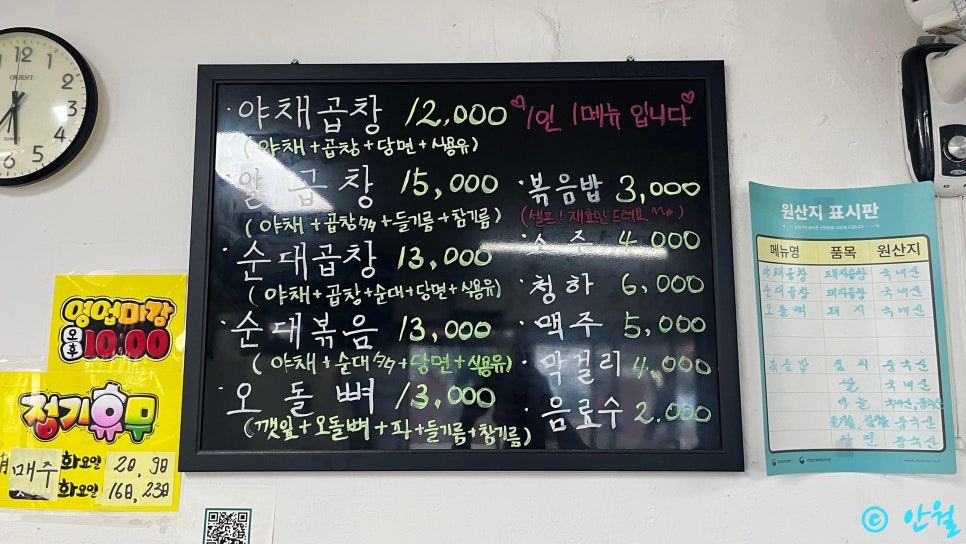 12
1
2
3
4
5
6
ORIENT
QUARTZ
· 야채곱창 12,000
(야채+곱창+당면+식용유)
알곱창 15,000
(야채+곱창+들기름+참기름)
· 순대곱창 13,000
(야채+곱창+순대+당면+식용유)
· 순대볶음 13,000
(야채+순대+당면+식용유)
· 오돌뼈 13,000
(깻잎+오돌뼈+파+들기름+참기름)
1인 1메뉴 입니다
· 볶음밥 3,000
(셀프! 재료만 드려요 ^^)
· 소주 4,000
· 청하 6,000
· 맥주 5,000
· 막걸리 4,000
· 음료수 2,000
영업마감
오후 10:00
정기휴무
매주 화요일 2일, 9일
화요일 16일, 23일
원산지 표시판
메뉴명 품목 원산지
야채곱창 돼지곱창 국내산
순대곱창 돼지곱창 국내산
오돌뼈 돼지 국내산
볶음밥 김치 중국산
쌀 국내산
마늘 중국산
당면 중국산
© 안월